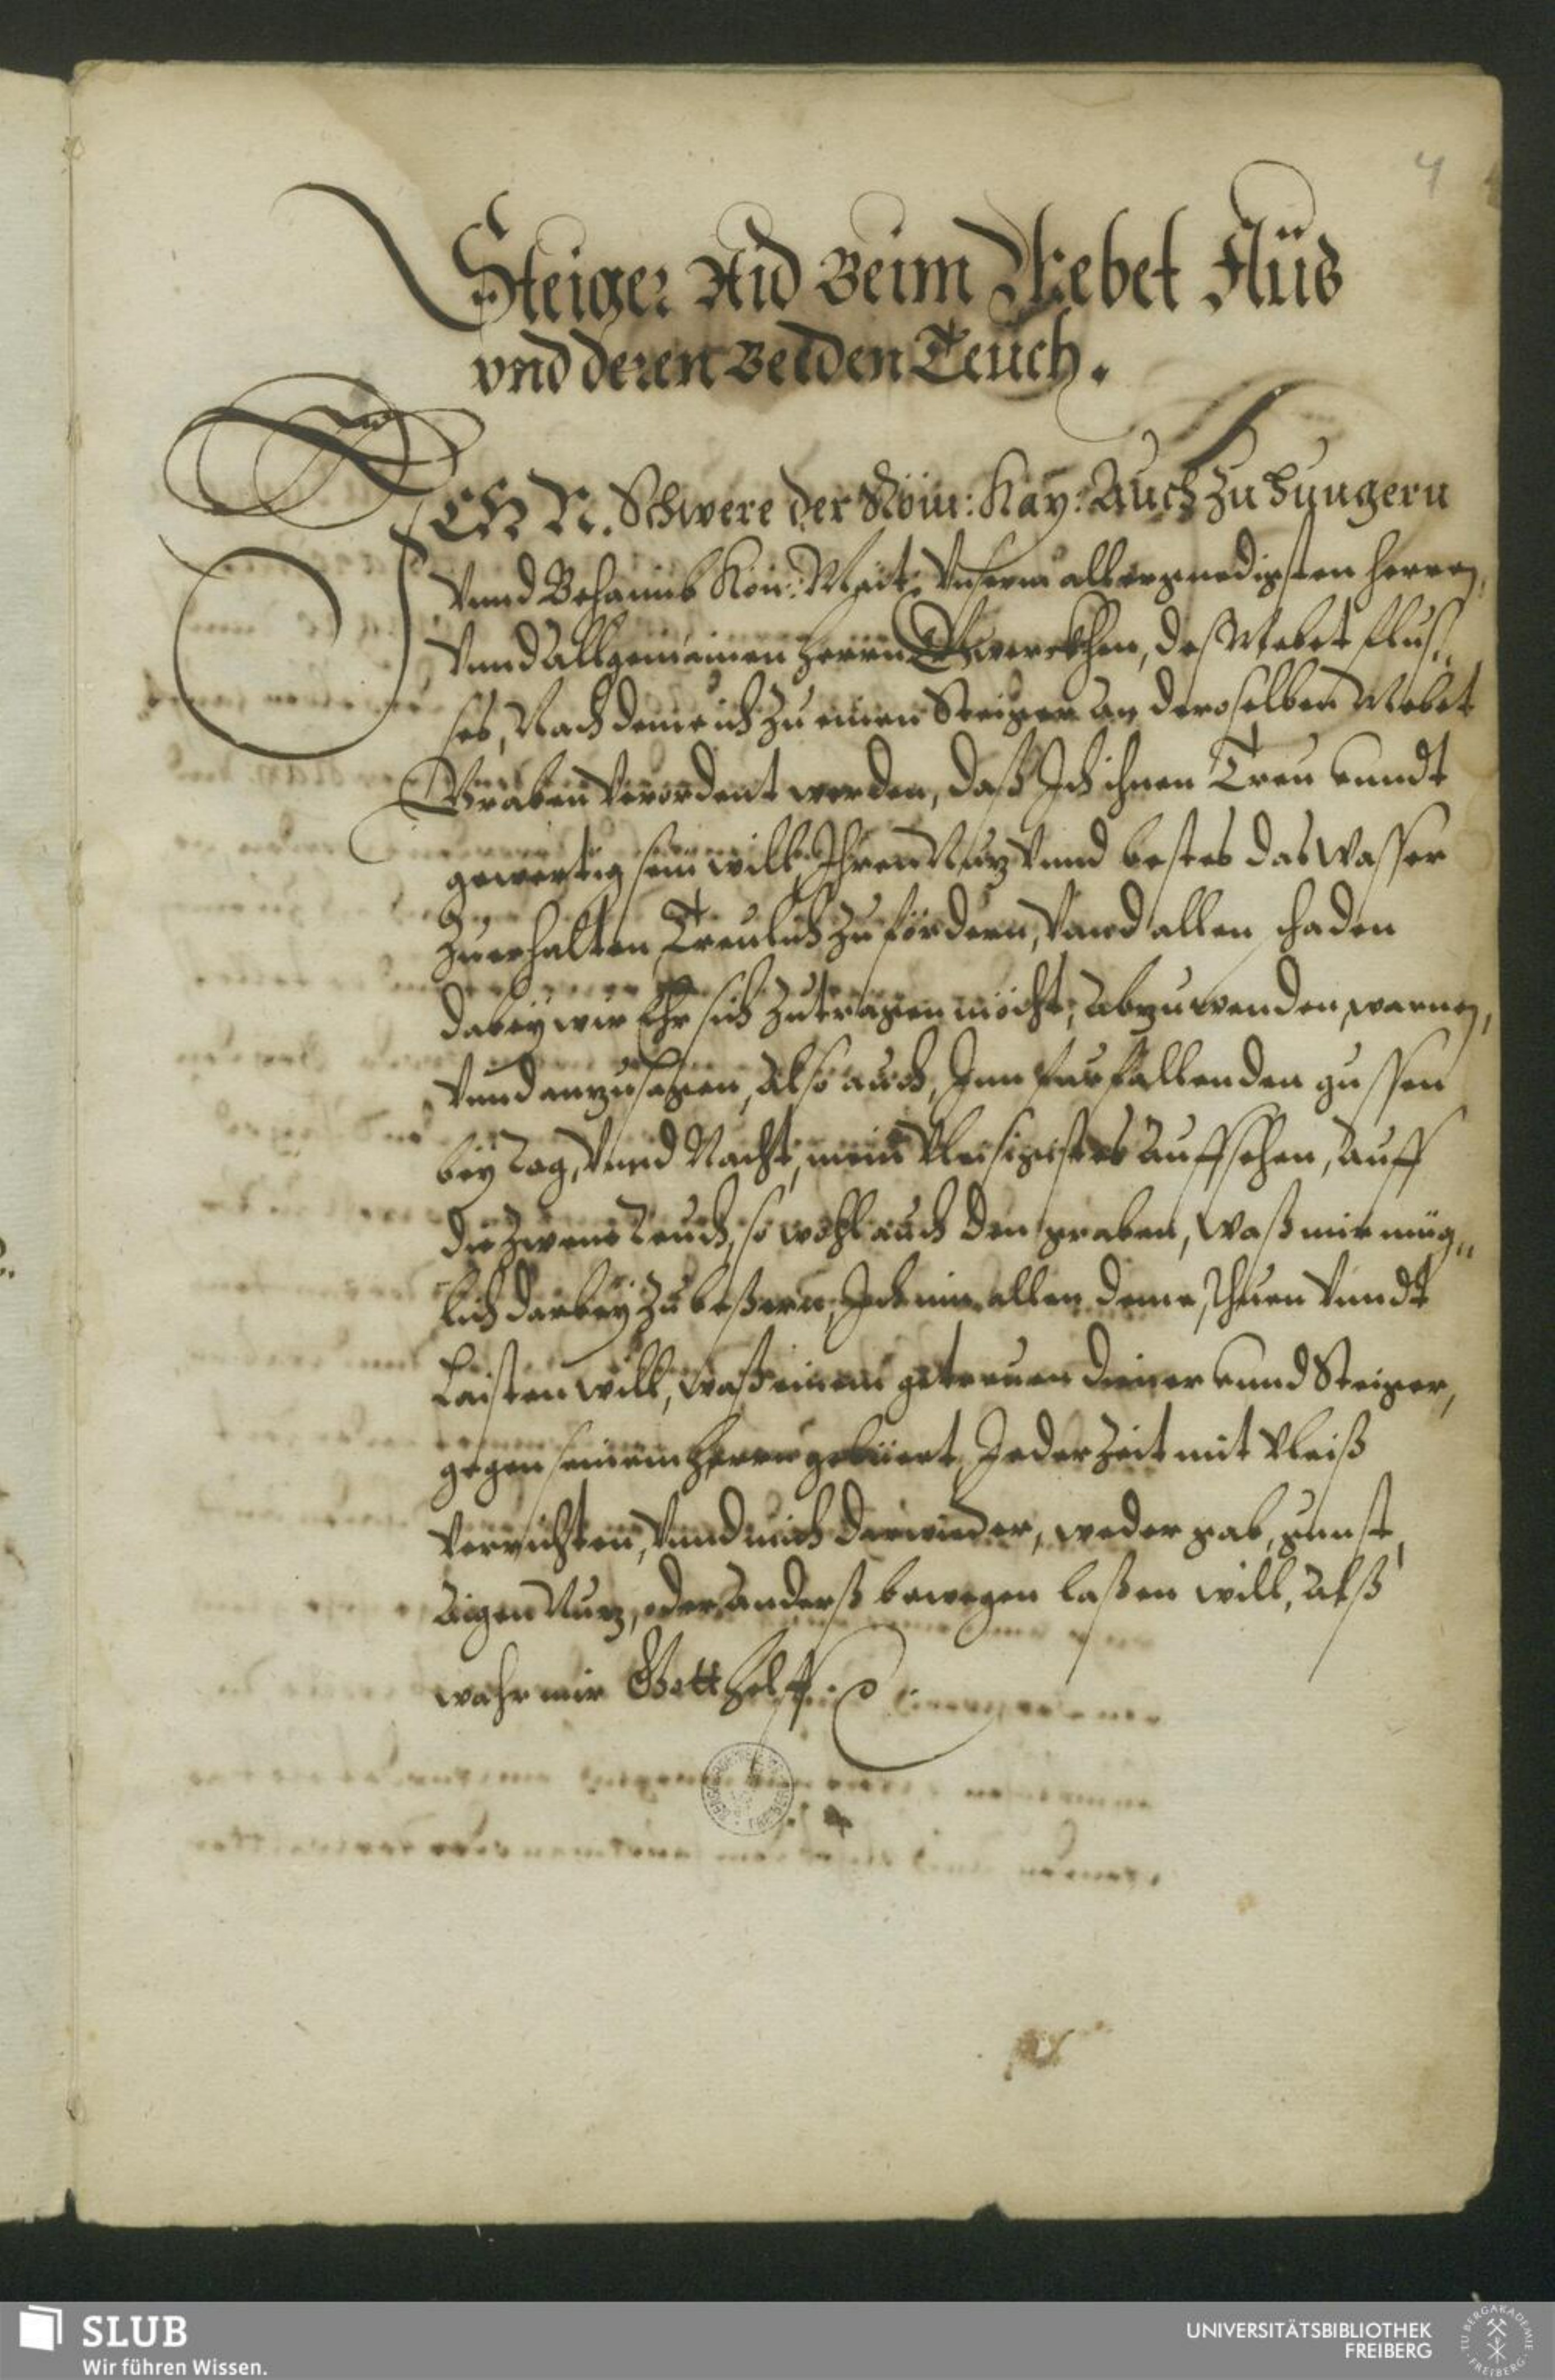 4
Steiger Aid Beim Webet Flüs
vnd deren Beeden Teuch.
ICH N. Schwere der Röm: Kay: Auch zu Hungern
Vnnd Behaimb Kön: Mait: Vnserm allergnedigsten herren,
Vnnd Allgemainen herrn Gewerckhen, des Webet flus„
ses, Nach deme ich zu einen Steiger an deroselben Webet
Graben Verordent worden, daß Ich ihnen Treu vnndt
gewertig sein will, Ihren Nuz Vnnd bestes das Wasser
zuerhalten Treulich zu fördern, Vnnd allen schaden
dabey wie Ehr sich zutragen möcht, abzuwenden, warnen,
Vnnd anzusagen, also auch, Inn fürfallenden gussen
bey Tag, Vnnd Nacht, mein Vleisigistes Auffsehen, Auff
die Zwene Teuch, so wohl auch den graben, Waß mir müg„
lich darbey zu beßern, Ich inn allen deme Thuen Vnndt
Laisten will, waß einem getreuen diener vnnd Steiger,
gegen seinem herrn gebüert, Jederzeit mit Vleiß
Verrichten, Vnnd mich derwieder, weder gab, gunst,
aigen Nuz, oder anderß bewegen laßen will, Alß
wahr mir Gott helff.
SLUB
Wir führen Wissen.
UNIVERSITÄTSBIBLIOTHEK
FREIBERG
TU BERGAKADEMIE
FREIBERG